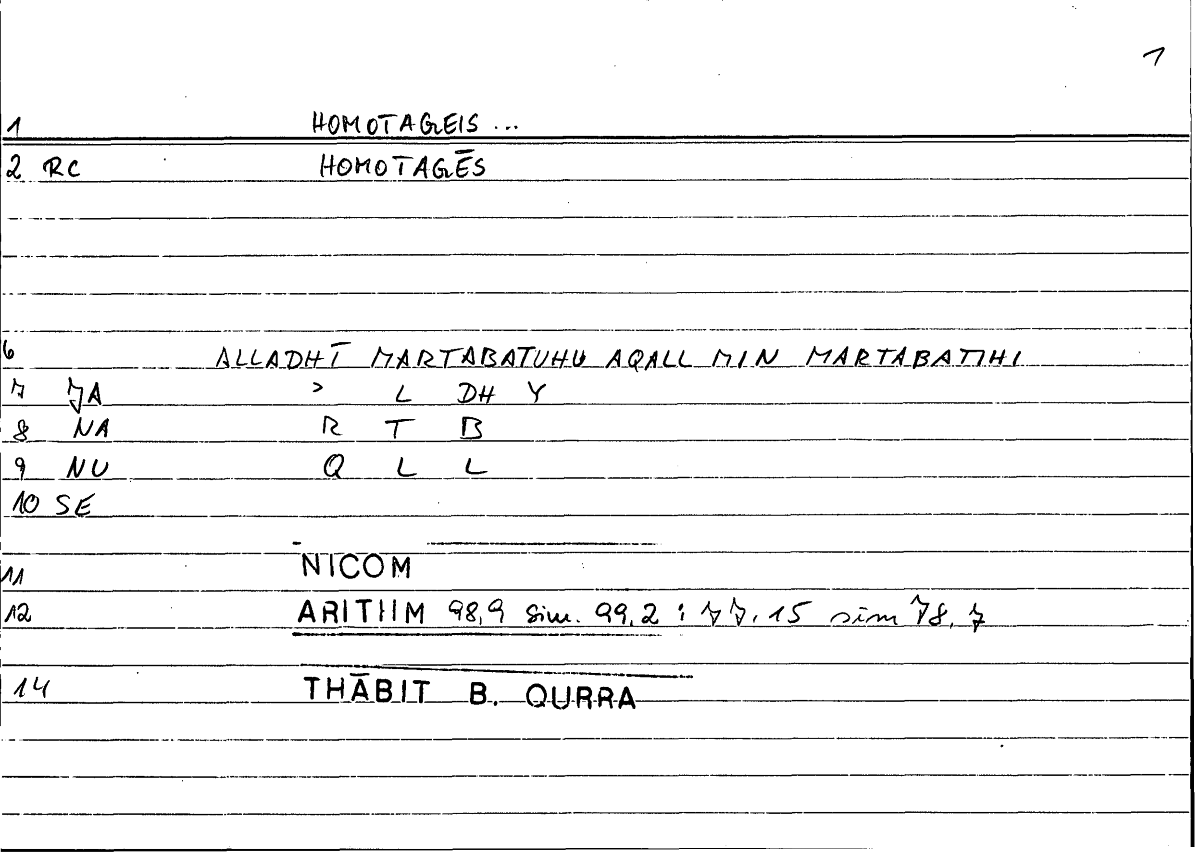 1
1 HOMOTAGEIS ...
2 RC HOMOTAGĒS
6 ALLADHĪ MARTABATUHU AQALL MIN MARTABATIHI
7 JA ʾ L DH Y
8 NA R T B
9 NU Q L L
10 SE
11 NICOM
12 ARITHM 98,9 sim. 99,2 : 77,15 sim 78,7
14 THĀBIT B. QURRA